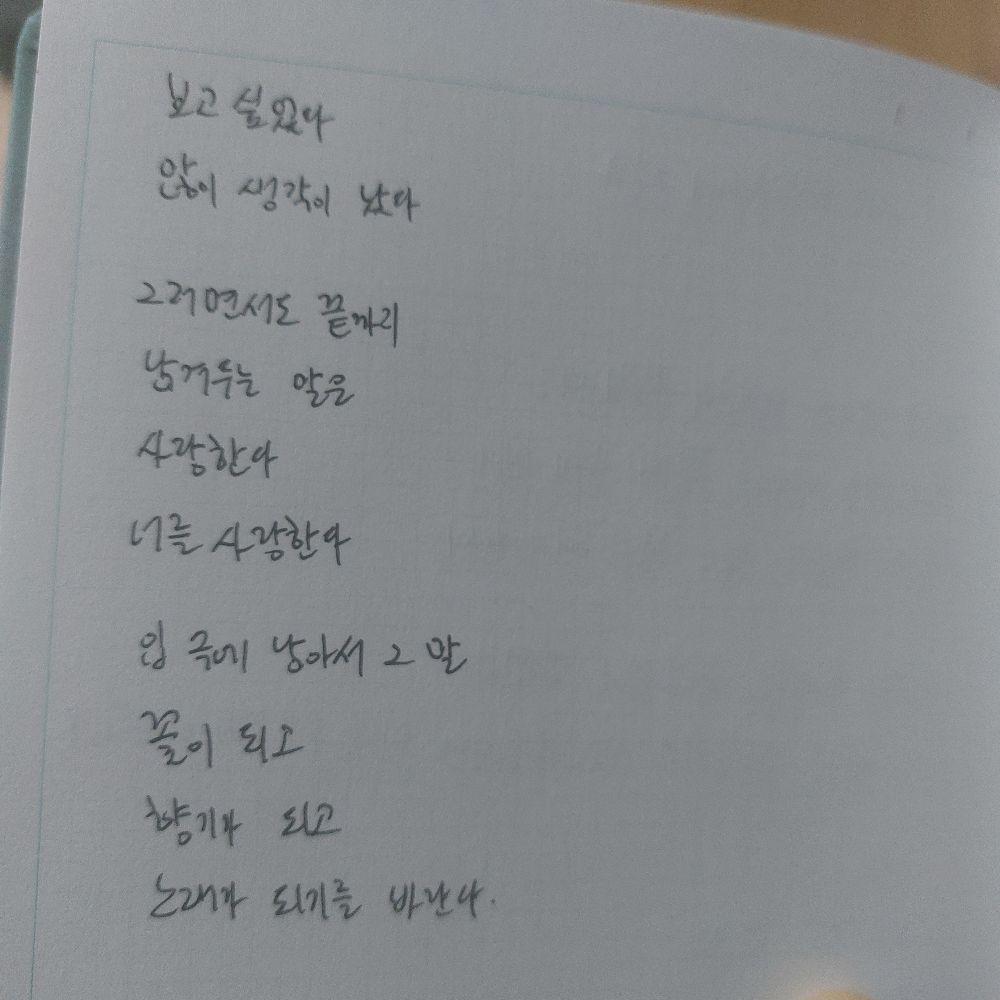 보고 싶었다
많이 생각이 났다
그러면서도 끝까지
남겨두는 말은
사랑한다
너를 사랑한다
입 속에 남아서 그 말
꽃이 되고
향기가 되고
노래가 되기를 바란다.